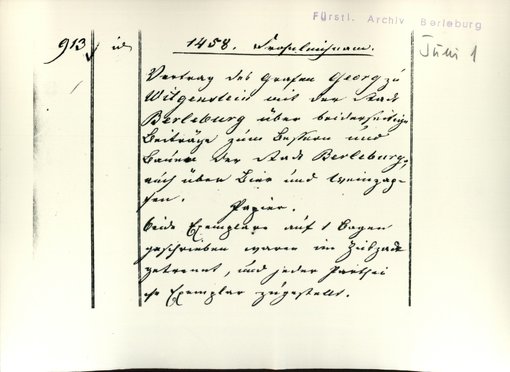 Fürstl. Archiv Berleburg
Juni 1
913
1458. Frohnleichnam.
Vertrag des Grafen Georg zu
Witgenstein mit der Stadt
Berleburg über beiderseitige
Beiträge zum Bessern und
Bauen der Stadt Berleburg,
auch über Bier und Weinzap-
fen.
Papier.
beide Exemplare auf 1 Bogen
geschrieben waren im Zickzack
getrennt, und jeder Parthei
Exemplar zugestellt.